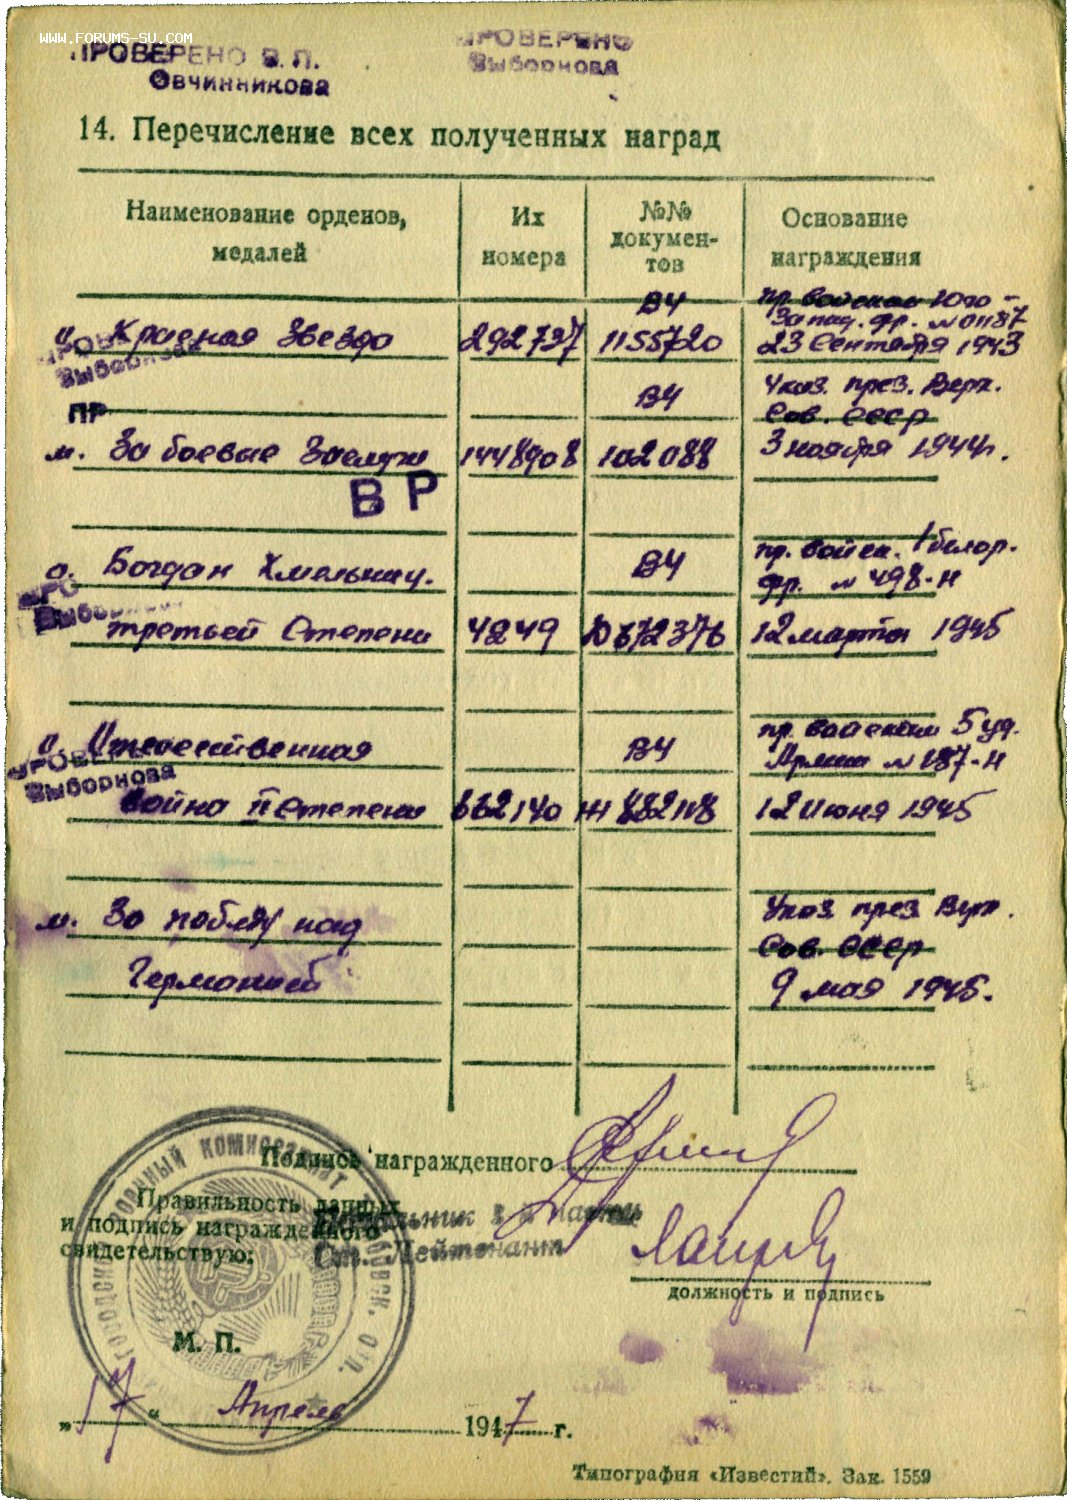 www.forums-su.com
ПРОВЕРЕНО В. П.
Овчинникова
ПРОВЕРЕНО
Выборнова
14. Перечисление всех полученных наград
Наименование орденов, медалей
Их номера
№№ документов
Основание награждения
ВЧ
пр. войскам Юго-
Запад. фр. № 01187
о. Красная Звезда 292727 1155720 23 Сентября 1943
Выборнова
ВЧ
Указ. през. Верх.
Сов. СССР
ПР
м. За боевые Заслуги 1448908 102088 3 ноября 1944г.
В Р
о. Богдан Хмельниц. ВЧ
пр. войск. 1 белор.
фр. № 498-н
Выборнова
третьей Степени 4249 672376 12 марта 1945
о. Отечественная ВЧ
пр. войскам 5 уд.
Армии № 187-н
ПРОВЕРЕНО
Выборнова
война II Степени 662140 882118 12 Июня 1945
м. За победу над
Указ през. Верх.
Сов. СССР
Германией 9 мая 1945.
Подпись награжденного
Правильность данных
и подпись награжденного
свидетельствую:
Начальник части
Ст. Лейтенант
должность и подпись
М. П.
„17“ Апрель 1947 г.
Типография «Известий». Зак. 1559